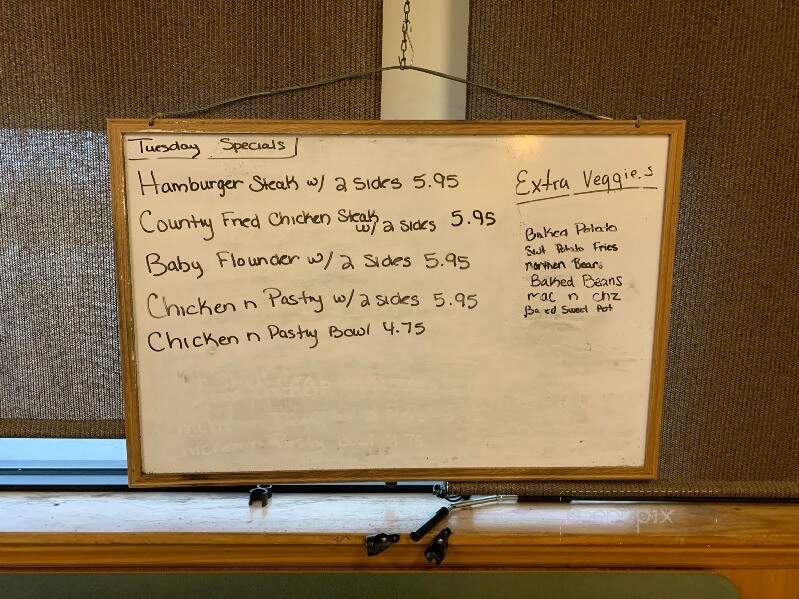 Tuesday Specials
Hamburger Steak w/ 2 sides 5.95
Country Fried Chicken Steak w/ 2 sides 5.95
Baby Flounder w/ 2 sides 5.95
Chicken n Pastry w/ 2 sides 5.95
Chicken n Pastry Bowl 4.75
Extra Veggies
Baked Potato
Swt Potato Fries
northern Beans
Baked Beans
mac n chz
Baked Sweet Pot